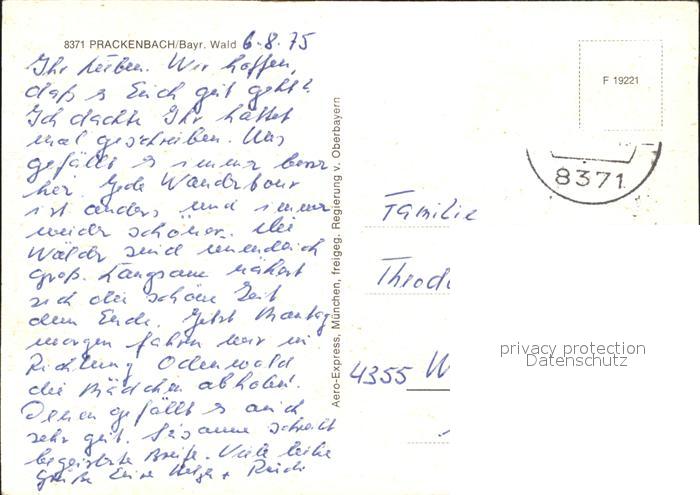 8371 PRACKENBACH/Bayr. Wald 6.8.75
Ihr Lieben. Wir hoffen,
daß es Euch gut geht?
Ich dachte Ihr hättet
mal geschrieben. Uns
gefällt es immer besser
hier. Jede Wandertour
ist anders und immer
wieder schöner. Die
Wälder sind unendlich
groß. Langsam nähert
sich die schöne Zeit
dem Ende. Jetzt Montag
morgen fahren wir in
Richtung Odenwald
die Mädchen abholen.
Denen gefällt es auch
sehr gut. Susanne schreibt
begeisterte Briefe. Viele liebe
Grüße Eure Helga + Rudi
Aero-Express, München, freigeg. Regierung v. Oberbayern
F 19221
8371
Familie
Theod
4355 W
privacy protection
Datenschutz